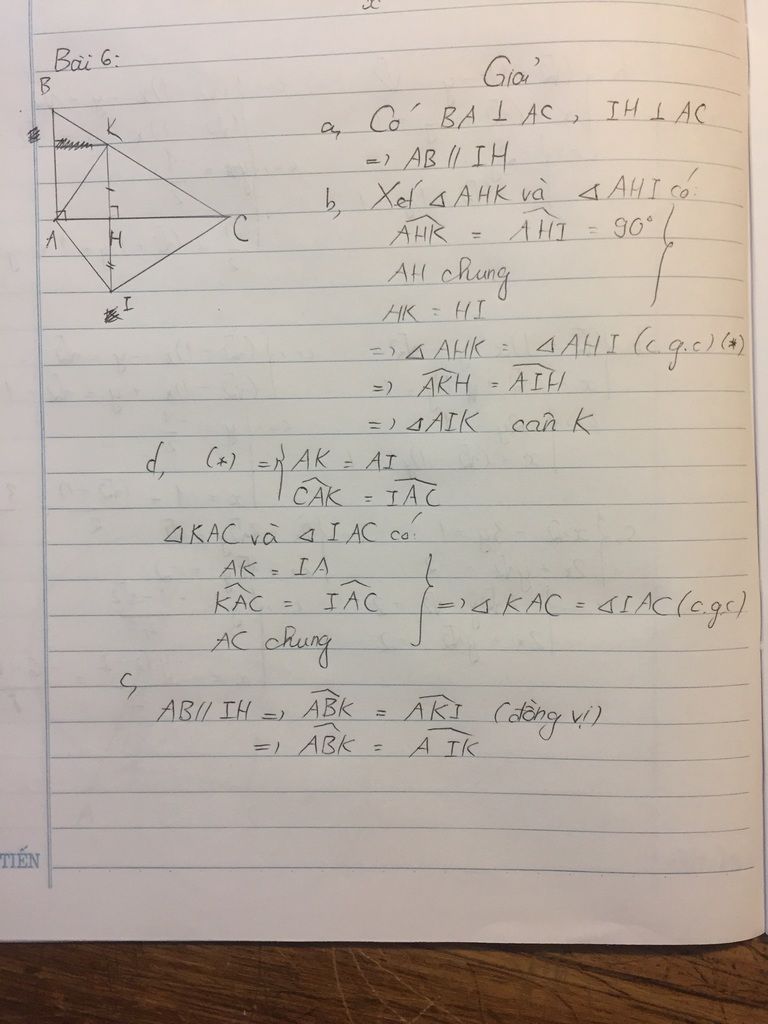 x
Bài 6:
B
K
A
H
C
I
Giải
a, Có BA ⊥ AC , IH ⊥ AC
=> AB // IH
b, Xét △ AHK và △ AHI có:
AHK = AHI = 90°
AH chung
HK = HI
=> △ AHK = △ AHI (c.g.c) (*)
=> AKH = AIH
=> △AIK cân K
d, (*) => { AK = AI
CAK = IAC
△KAC và △ IAC có:
AK = IA
KAC = IAC } => △ KAC = △IAC (c.g.c)
AC chung
c,
AB // IH => ABK = AKI (đồng vị)
=> ABK = AIK
TIẾN